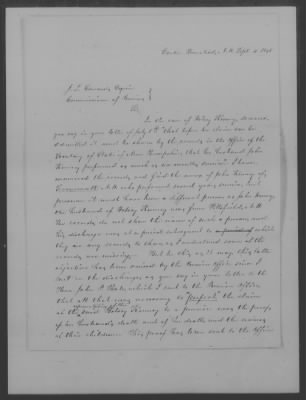 Center Barnstead, N.H. Sept. 4, 1848
J. L. Edwards Esquire
Commissioner of Pensions
Sir
In the case of Betsey Kenney deceased,
you say in your letter of July 6th that before the claim can be
admitted it must be shown by the records in the office of the
Secretary of State of New Hampshire, that her husband John
Kenney performed as much as six months service. I have
examined the records and find the name of John Kenney of
N.H. who performed several years service, and
presume it must have been a different person as John Kenney
the husband of Betsey Kenney was from Pittsfield, N.H.
The records do not show the name of such a person and
his discharge was at a period subsequent to which
they are any records to show as I understand some of the
records are missing. But be this as it may, this latter
objection has been raised by the Pension Office since I
sent on the discharges as you say in your letter to the
Hon. John P. Hale which I sent to the Pension Office,
that all that was necessary to perfect the claim
of the said Betsey Kenney to a pension was the proof
of her husband's death and of her death and the names
of their children. This proof has been sent to the Office